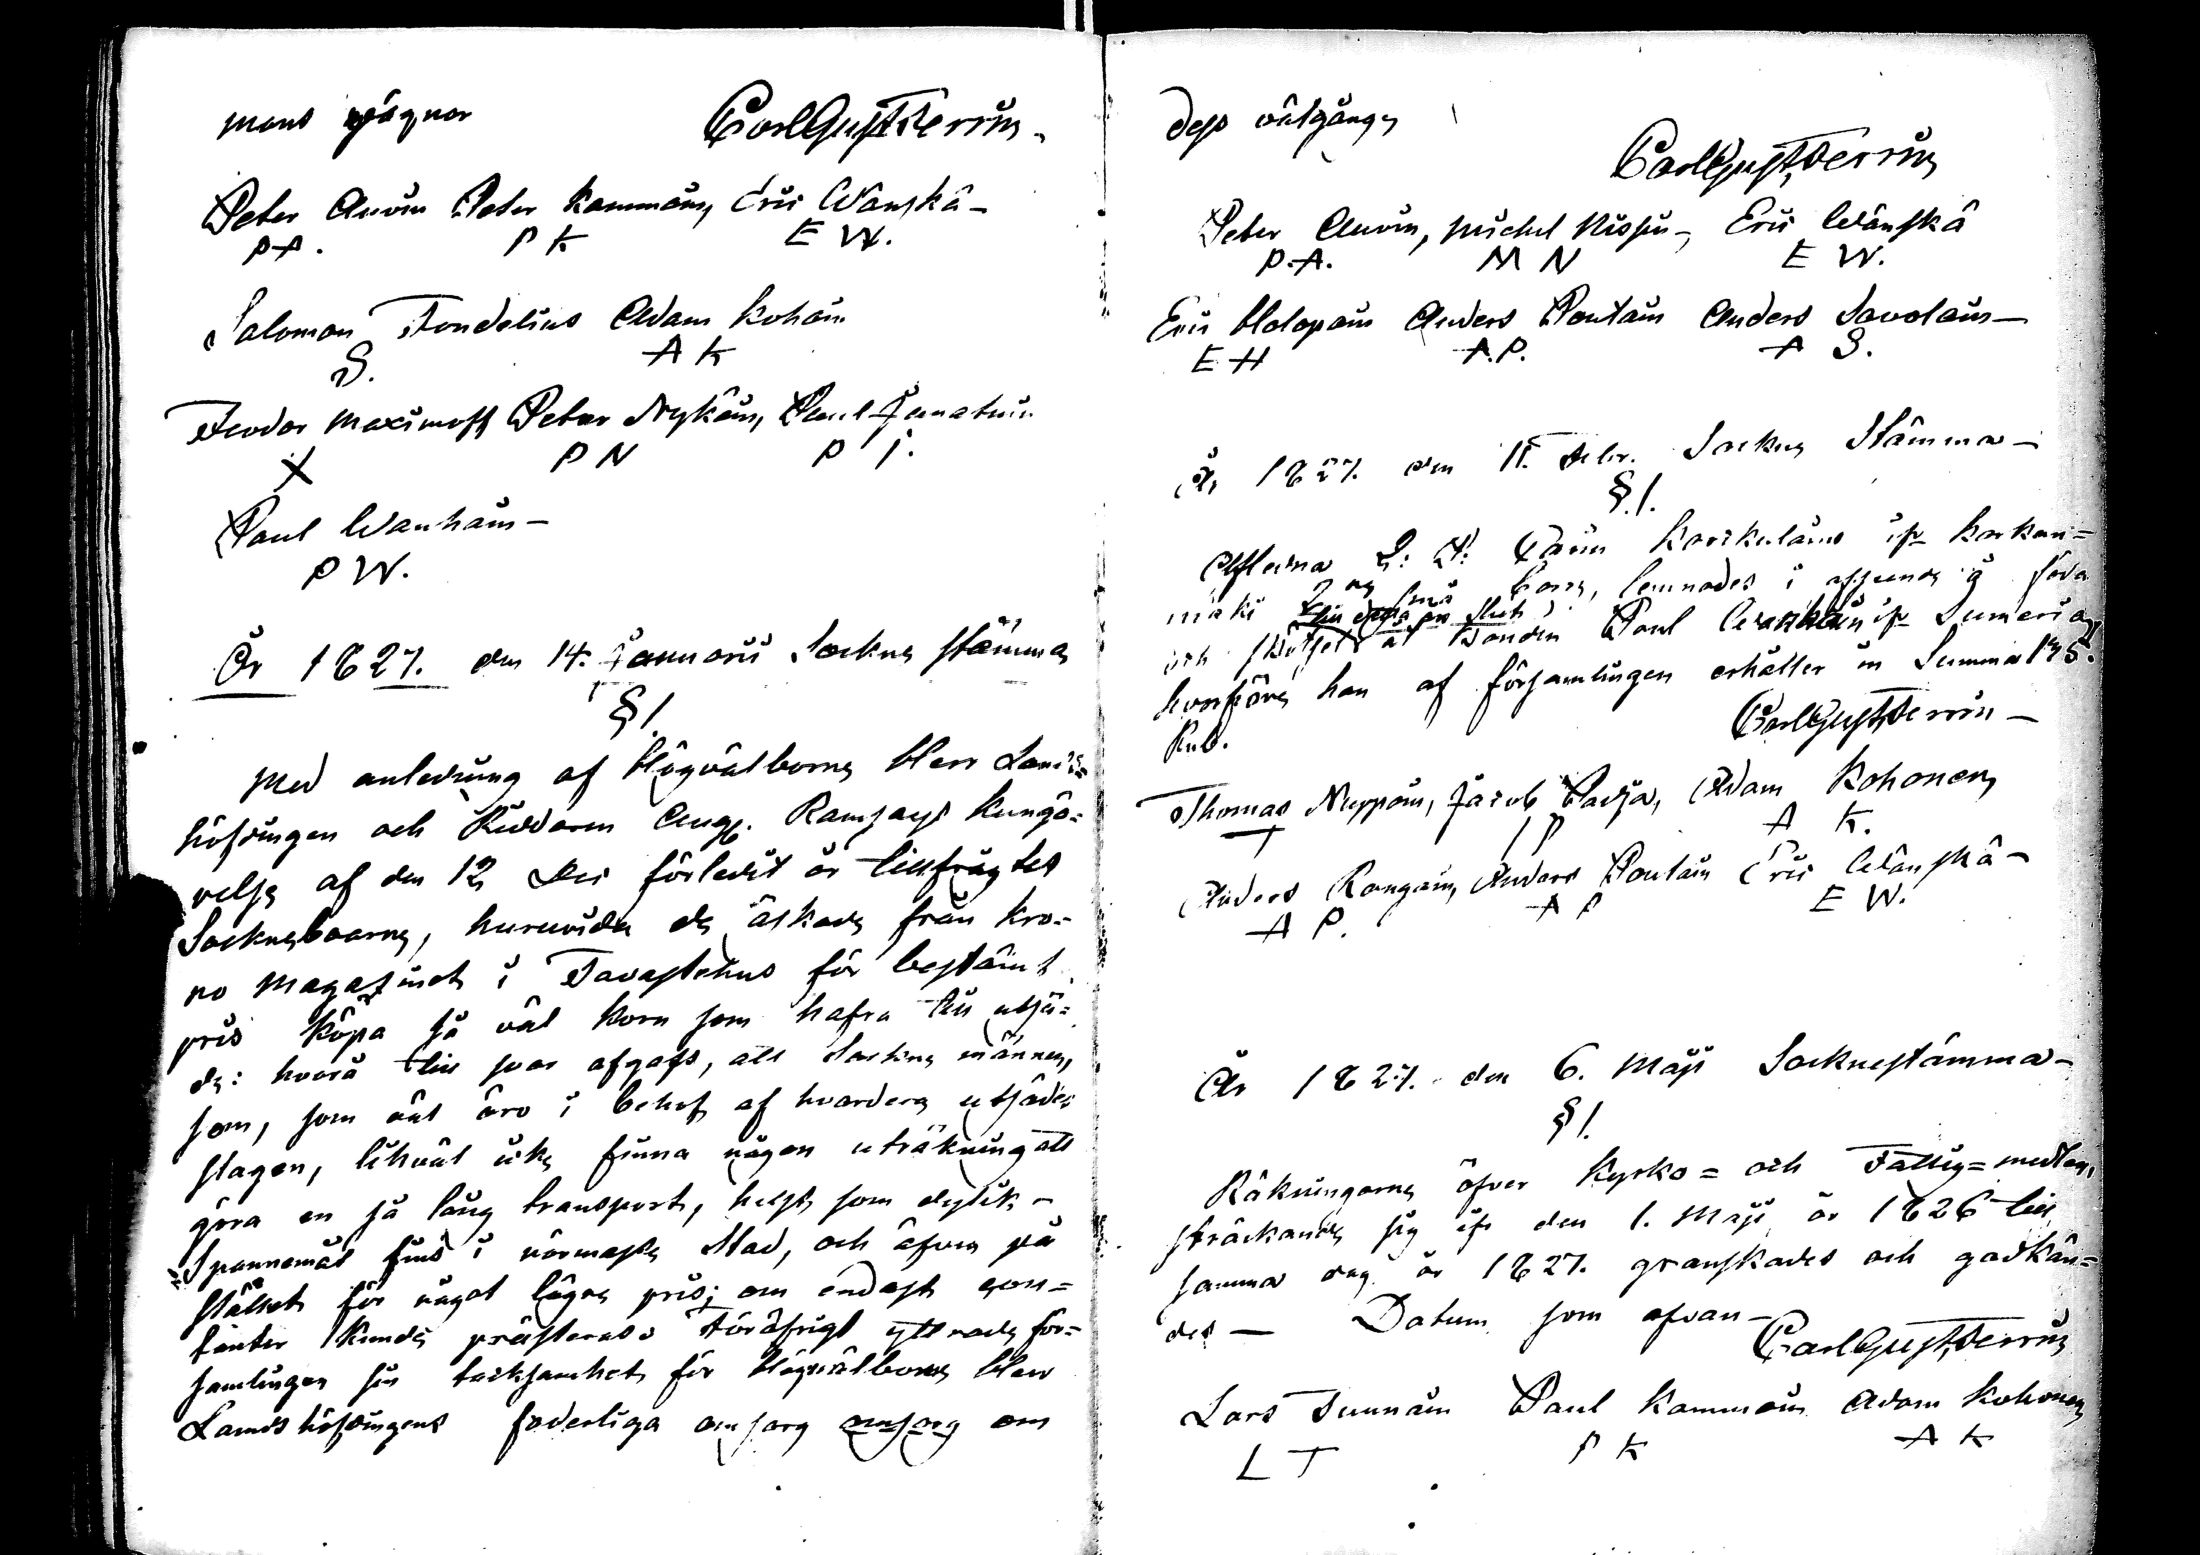 mans vägnar Carl Gust. Ferrin
Peter Auvin Peter Kammoin, Eric Wänskä
P A. P K E W.
Salomon Fondelius Adam Kohoin
S. A K
Feodor Maximoff Peter Nykäin, Paul
X P N P J.
Paul Wanhain
P W.
År 1827. den 14. Januarii Sockne stämma
§ 1.
Med anledning af Högvälborne Herr Lands
höfdingen och Riddaren Aug. Ramsays kungö=
relse af den 12 Dec. förledit år tillfrågtes
Sockneboarne, huruvida de äskade från Kro=
no Magazinet i Tavastehus för bestämt
pris köpa så väl korn som hafra till utsä=
de: hvarå till svar afgafs, att Sockne männen,
som, som väl äro i behof af hvardera utsädes
slagen, likväl icke finna någon uträkning att
göra en så lång transport, helst som dylik
Spannemål fins i närmaste Stad, och äfven på
stället för något lägre pris; om endast con=
tanter kunde præsteras. Föröfrigt yttrade för=
samlingen sin tacksamhet för Högvälborne Herr
Landshöfdingens faderliga omsorg omsorg om
dess välgång
Carl Gust. Ferrin
Peter Auvin, Michel Nissin, Eric Wänskä
P. A. M N E W.
Eric Holopain Anders Poutain Anders Savolain
E H A. P. A S.
År 1827. den 11. Febr. Sockne Stämma
§. 1.
Aflidna Karikulains ifr. Korkea=
mäki 2 små barn, lemnades i afseende å föda
och skötsel åt bonden Paul ifr. Sumeri
hvarföre han af församlingen erhåller en Summa 175.
Rub. Carl Gust. Ferrin
Thomas Nuppoin, Jacob Savja, Adam Kohonen
T I P A K.
Anders Rongain, Anders Poutain Eric Wänskä
A P. A P E W.
År 1827. den 6. Maji Socknestämma
§ 1.
Räkningarne öfver Kyrko= och Fattig=medlen,
sträckande sig ifr. den 1. Maji år 1826 till
samma dag år 1827. granskades och godkän=
des — Datum som ofvan
Carl Gust. Ferrin
Lars Tunnain Paul Kammoin Adam Kohonen
L T P K A K